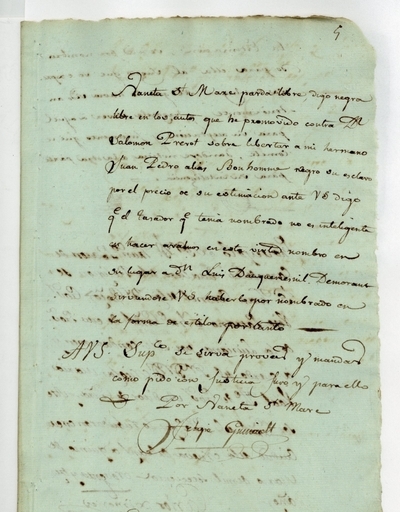 5
Naneta Sn Maxe parda libre, digo negra
libre en los autos que he promovido contra Dn
Salomon Prevot sobre libertar a mi hermano
Juan Pedro alias Bonhomme negro su esclavo
por el precio de su estimacion ante VS digo
qe el tasador qe tenia nombrado no es inteligente
en hacer en esta virtud nombro en
su lugar a Dn Luis Demorant
sirviendose VS haberlo por nombrado en
la forma de estilo por tanto
A VS Supco se sirva proveer y mandar
como pido con Justicia juro y para ello
Por Naneta Sn Maxe